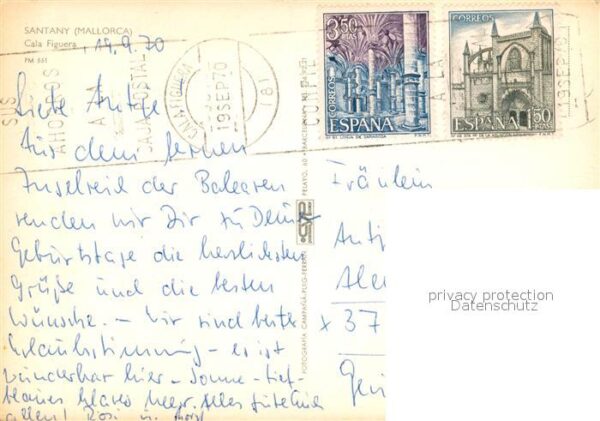 SANTANY (MALLORCA)
Cala Figuera
PM 551
19.9.70
CALA FIGUERA
19 SEP 70
181
CAJA POSTAL
CORREOS
3,50 PTAS
ESPAÑA
CORREOS
ESPAÑA 1,50
19 SEP 70
Liebe Antje
Aus dem fernen
Inselreich der Balearen
senden wir Dir zu Deinem
Geburtstage die herzlichsten
Grüße und die besten
Wünsche. – Wir sind bester
Urlaubsstimmung – es ist
wunderbar hier – Sonne – tief-
blaues klares Meer. Alles Gute
allen! Rosi u.
FOTOGRAFIA CAMPAÑÁ-PUIG-FERRAN
Fräulein
Antj
x 37
privacy protection
Datenschutz